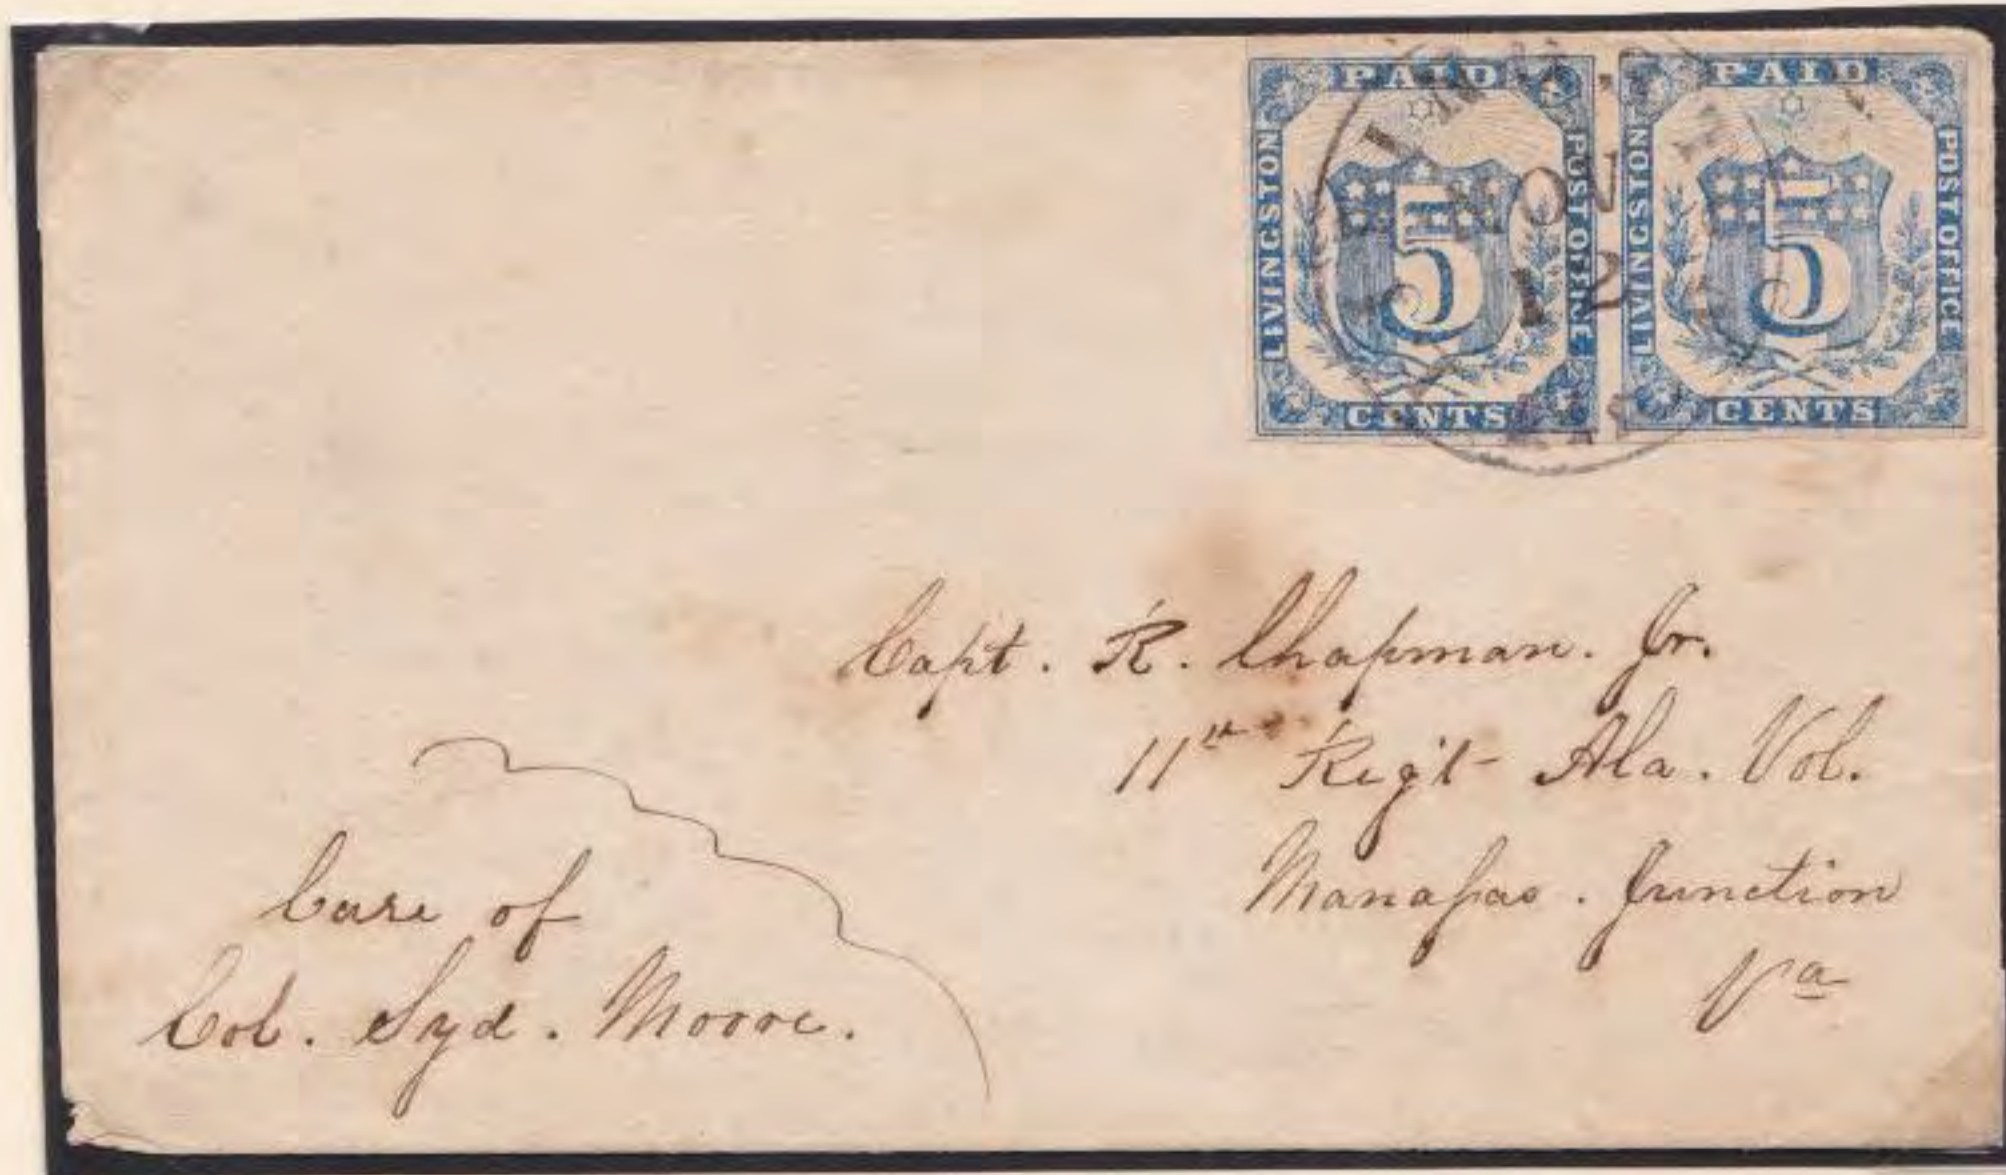 PAID
LIVINGSTON
5
POST OFFICE
CENTS
PAID
LIVINGSTON
5
POST OFFICE
CENTS
NOV
12
Capt. R. Chapman. Jr.
11th Regt Ala. Vol.
Manassas. Junction
Va
Care of
Col. Syd. Moore.